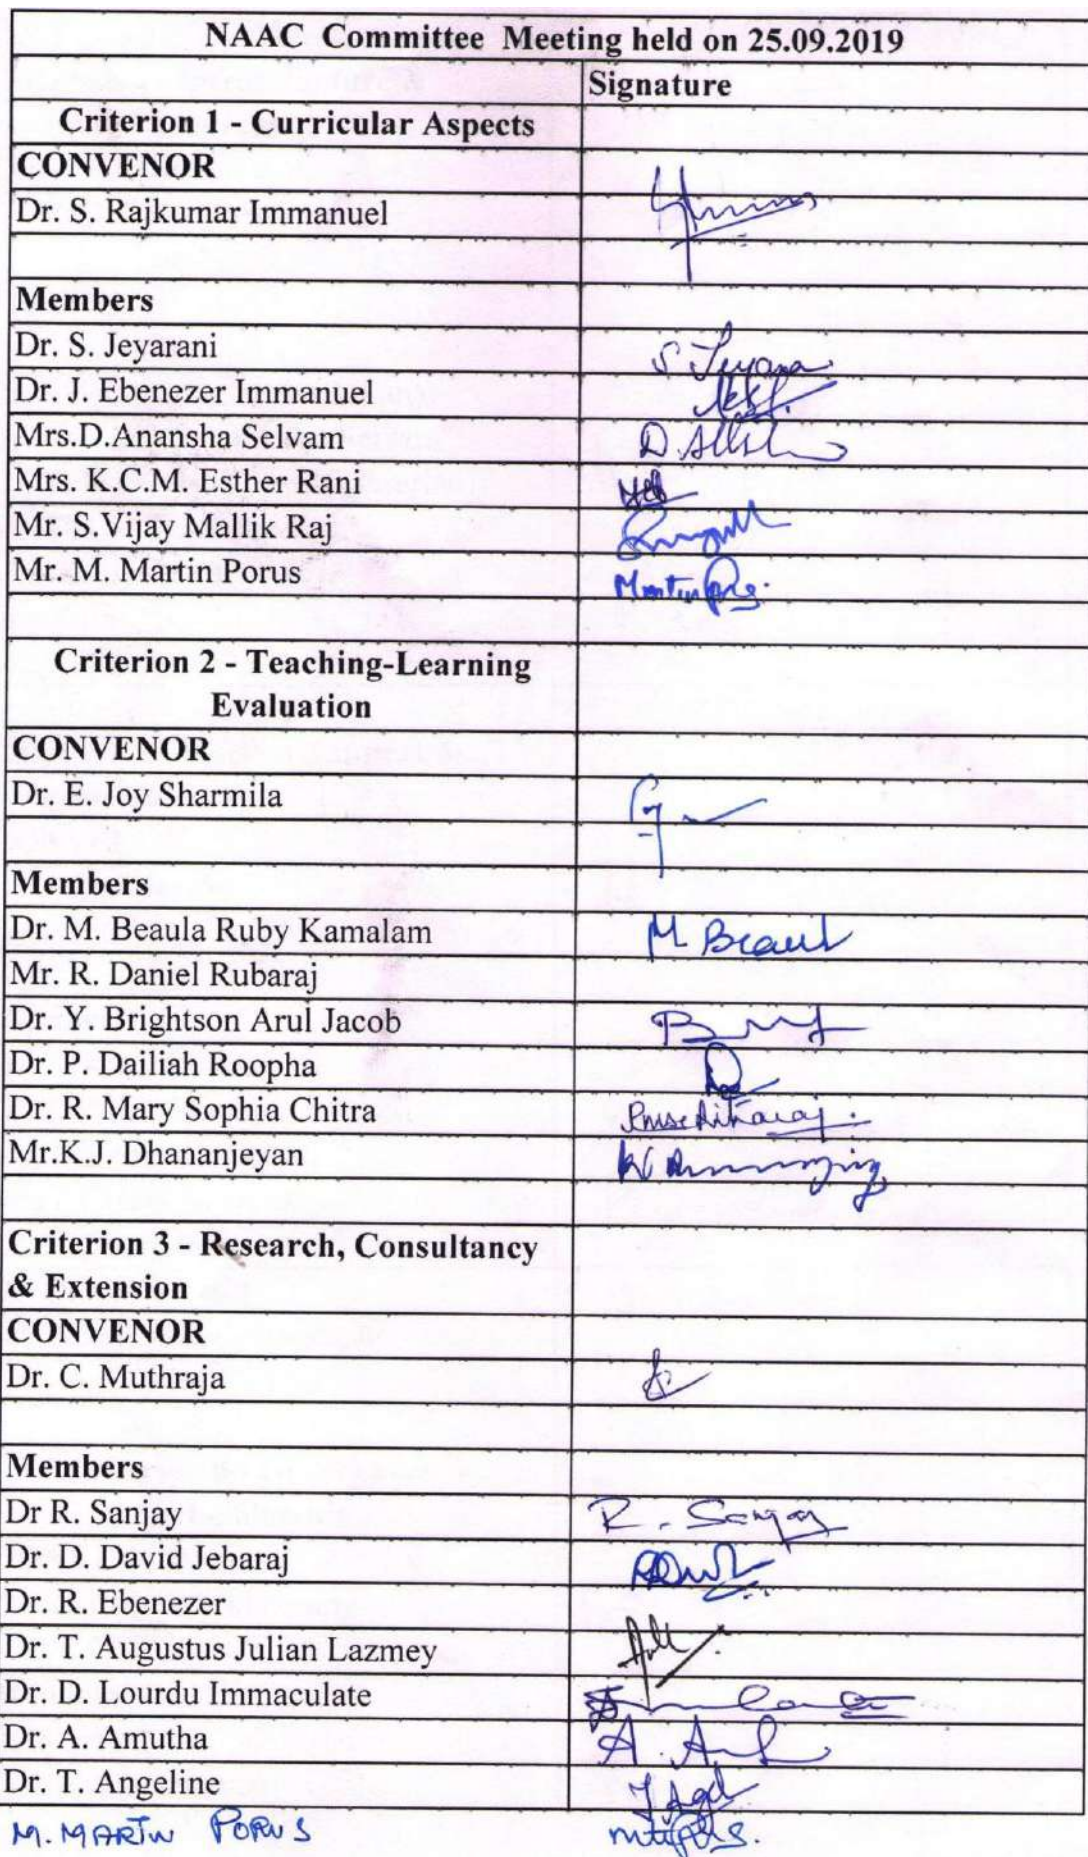 NAAC Committee Meeting held on 25.09.2019
Signature
Criterion 1 - Curricular Aspects
CONVENOR
Dr. S. Rajkumar Immanuel
Members
Dr. S. Jeyarani S. Jeyara
Dr. J. Ebenezer Immanuel
Mrs.D.Anansha Selvam
Mrs. K.C.M. Esther Rani
Mr. S.Vijay Mallik Raj
Mr. M. Martin Porus
Criterion 2 - Teaching-Learning
Evaluation
CONVENOR
Dr. E. Joy Sharmila
Members
Dr. M. Beaula Ruby Kamalam M Beaul
Mr. R. Daniel Rubaraj
Dr. Y. Brightson Arul Jacob
Dr. P. Dailiah Roopha
Dr. R. Mary Sophia Chitra
Mr.K.J. Dhananjeyan
Criterion 3 - Research, Consultancy
& Extension
CONVENOR
Dr. C. Muthraja
Members
Dr R. Sanjay R. Sanjay
Dr. D. David Jebaraj
Dr. R. Ebenezer
Dr. T. Augustus Julian Lazmey
Dr. D. Lourdu Immaculate
Dr. A. Amutha
Dr. T. Angeline
M. MARTIN PORUS